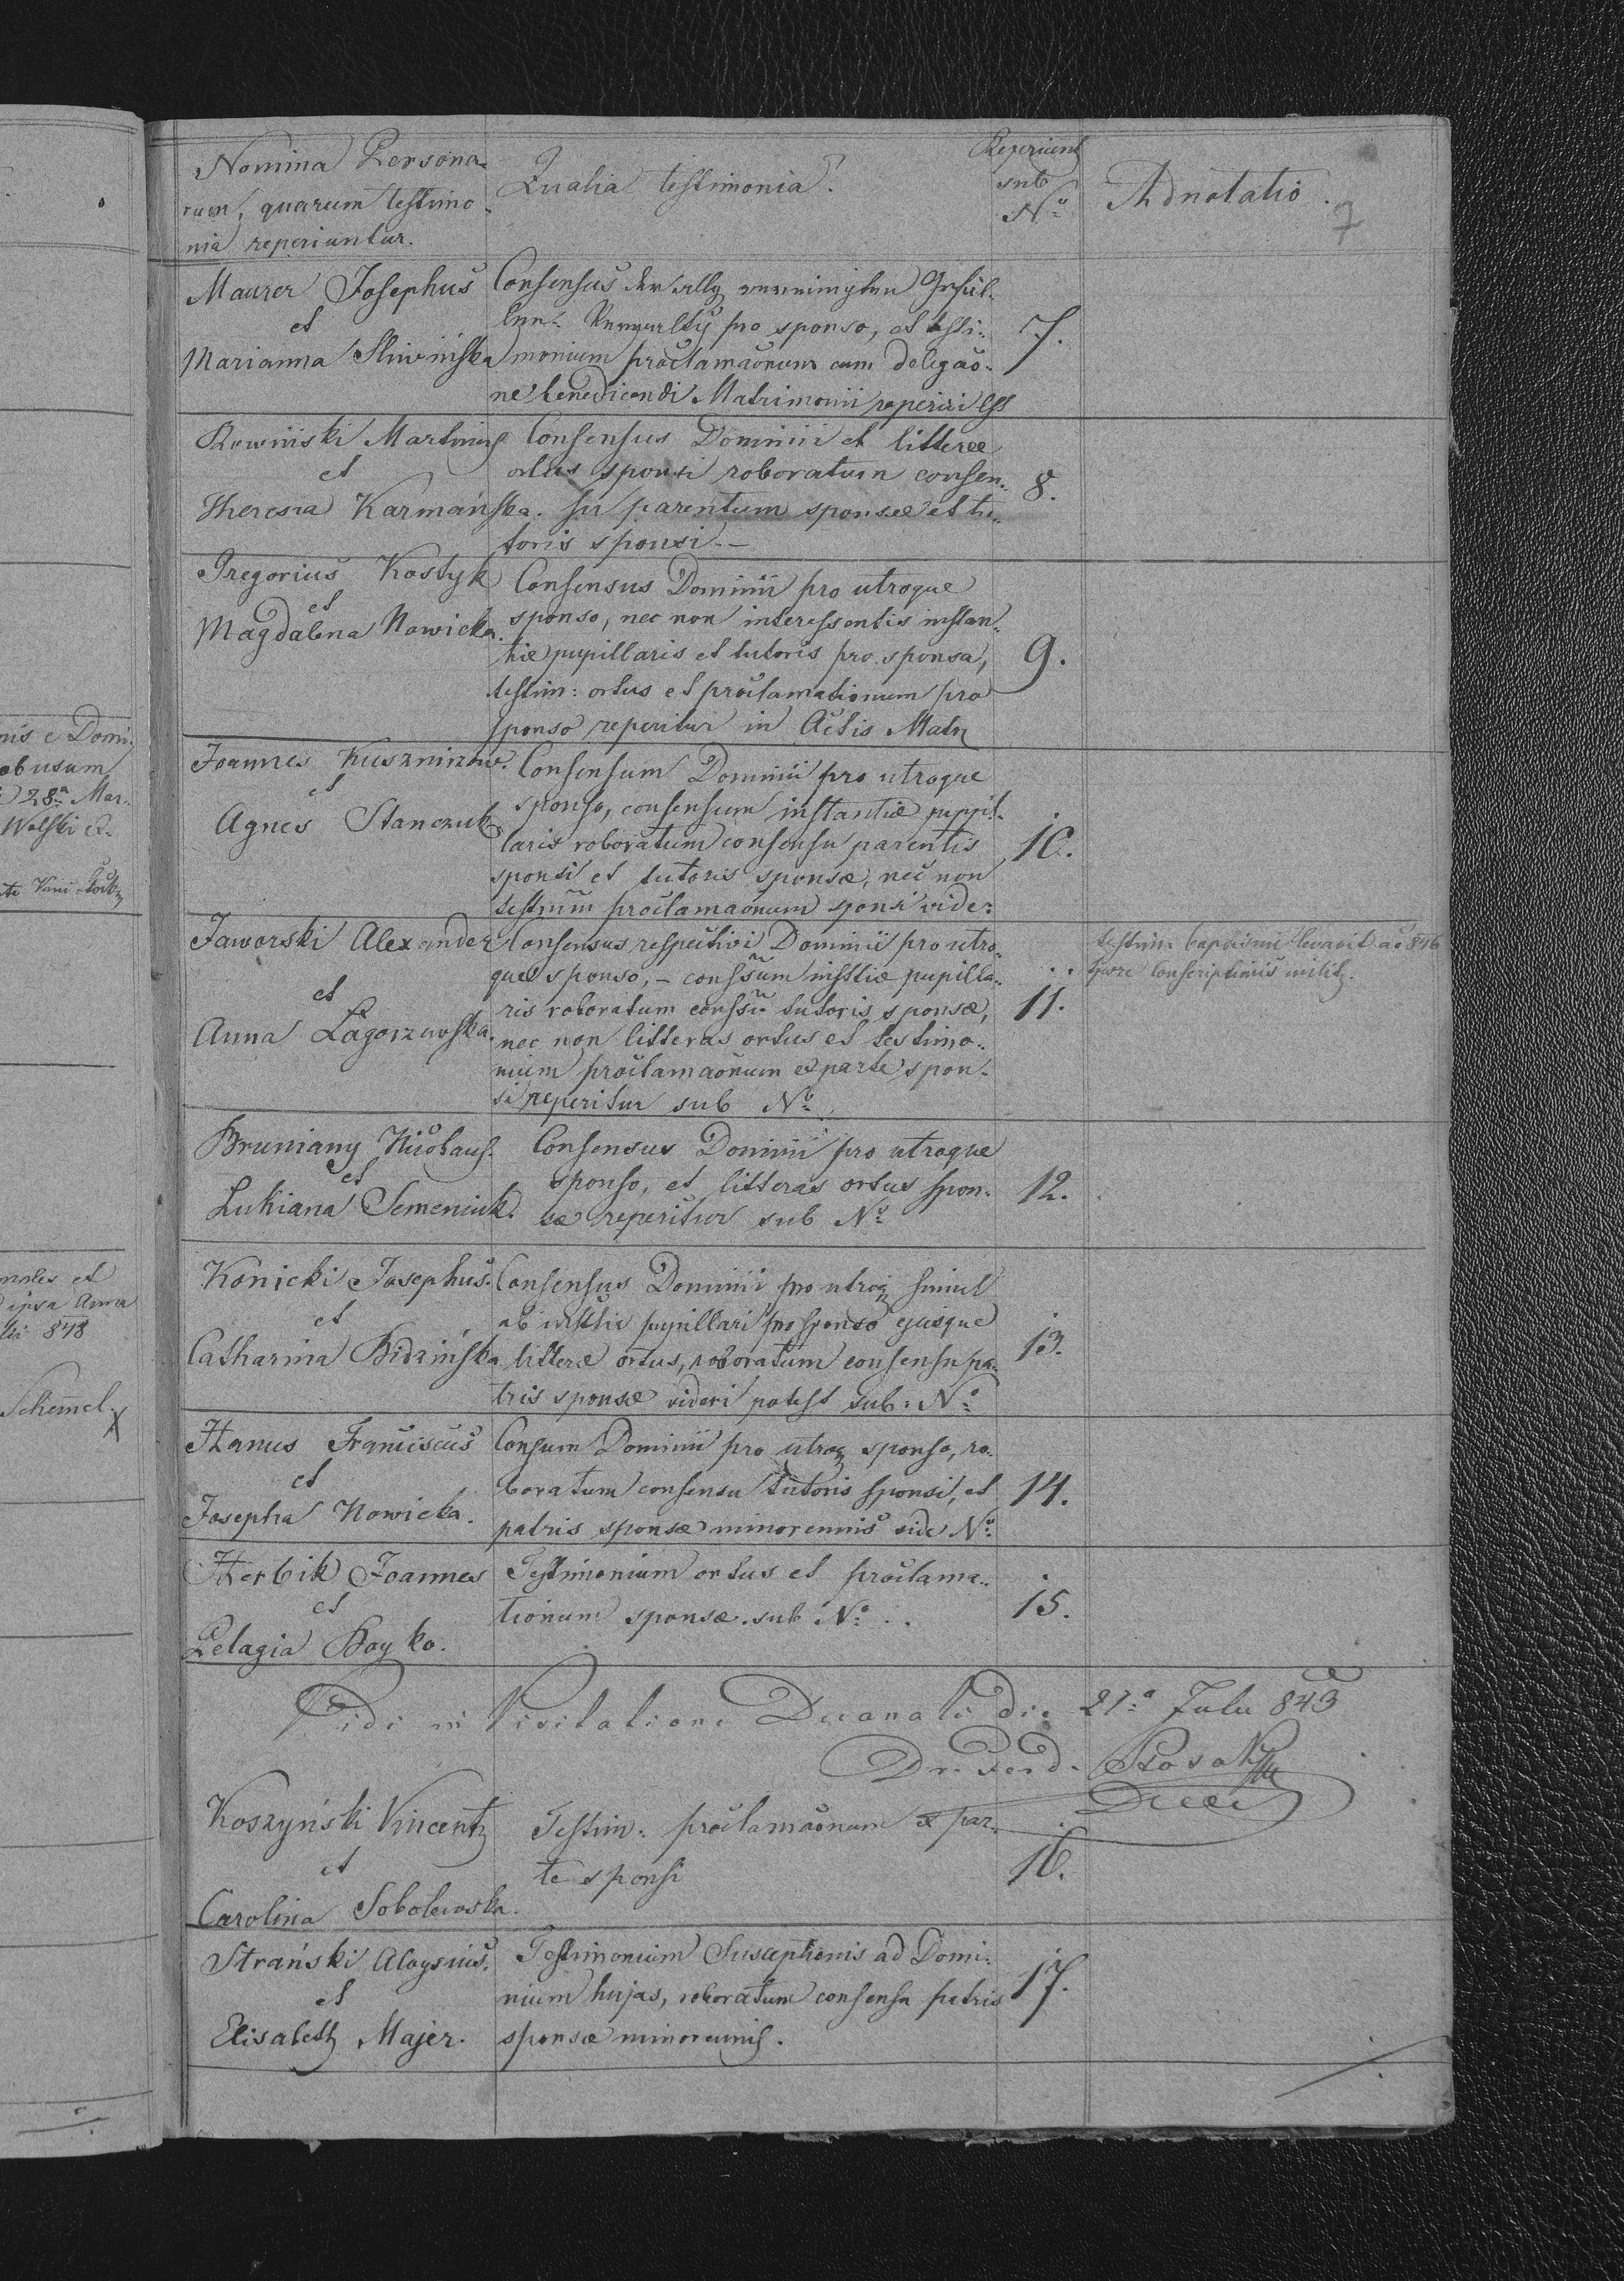 Nomina Persona-
rum, quarum testimo-
nia reperiuntur.
Qualia testimonia.
Reperiunt
sub
No
Adnotatio.
7
Maurer Josephus
et
Marianna Sliwińska
Consensus der
pro sponso, et testi-
monium proclamaonum cum delegao-
ne benedicendi Matrimonii reperiri
7.
Rowiński Martinus
et
Theresia Karmańska.
Consensus Dominii et litterae
ortus sponsi roboratum consen-
su parentum sponsae et tu-
toris sponsi.-
8.
Gregorius Kostyk
et
Magdalena Nowicka.
Consensus Dominii pro utroque
sponso, nec non interessentis instan-
tiae pupillaris et tutoris pro sponsa,
testim: ortus et proclamationum pro
sponso reperitur in Actis
9.
Joannes Kuszmirow.
et
Agnes Stanczuk.
Consensum Dominii pro utroque
sponso, consensum instantiae puppil-
laris roboratum consensu parentis
sponsi et tutoris sponsae, nec non
testium proclamaonum sponsi vide:
10.
Jaworski Alexander
et
Anna Zagorzewska.
Consensus respectivi Dominii pro utro-
que sponso, - conssum insstiae pupilla-
ris roboratum conssu tutoris sponsae,
nec non litteras ortus et testimo-
nium proclamaonum ex parte spon-
si reperitur sub No
11.
testim: baptismi levavit ao 846
tpore Conscriptionis milit.
Bruniany Nicolaus.
et
Lukiana Semeniuk.
Consensus Dominii pro utroque
sponso, et litteras ortus spon-
sae reperitur sub No
12.
Konicki Josephus.
et
Catharina Bidzińska
Consensus Dominii pro utroq simul
ab insstiae pupillari pro sponso ejusque
litterae ortus, roboratum consensu pa-
tris sponsae videri potest sub: No
13.
Hanus Franciscus
et
Josepha Nowicka.
Consum Dominii pro utroq sponso, ro-
boratum consensu tutoris sponsi, et
patris sponsae minorennis vide No
14.
Herbik Joannes
et
Pelagia Boyko.
Testimonium ortus et proclama-
tionum sponsae. sub No..
15.
Vidi in Visitatione Decanali die 21a Julii 843
Dr. Ferd.
Koszyński Vincentz
et
Carolina Sobolewska.
Testim: proclamaonum ex par-
te sponsi
16.
Strański Aloysius.
et
Elisabeth Majer.
Testimonium Susceptionis ad Domi-
nium hujas, roboratum consensu patris
sponsae minorennis.
17.